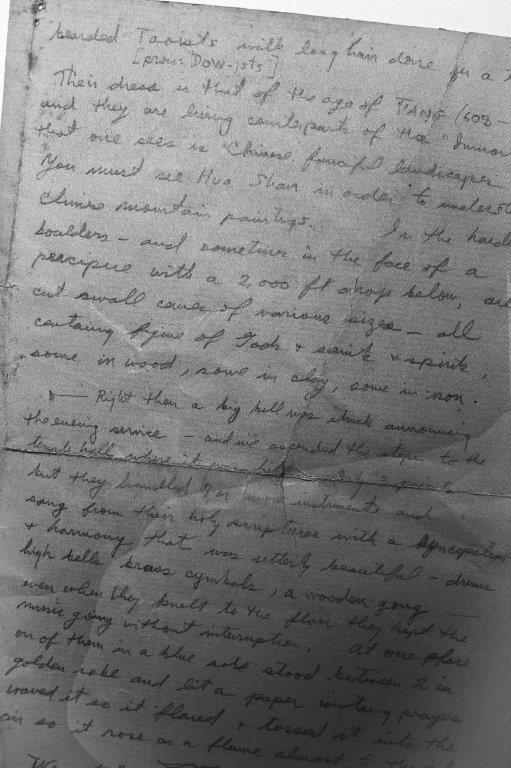 bearded Taoists with long hair done in a
[pron: Dow-ists]
Their dress is that of the age of TANG (603 -
and they are living counterparts of the "Immor
that one sees in Chinese fanciful landscapes
You must see Hua Shan in order to understa
Chinese mountain paintings. In the hard
boulders - and sometimes in the face of a
precipice with a 2,000 ft drop below, are
cut small caves of various sizes - all
containg figure of Gods & saints & spirits,
some in wood, some in clay, some in iron.
— Right then a big bell was struck announcing
the evening service - and we ascended the steps to the
temple hall where it was held. Only 3 priests
but they handled 7 or more instruments and
sang from their holy scriptures with a syncopation
& harmony that was utterly beautiful - drums
high bells brass cymbals, a wooden gong —
even when they knelt to the floor they kept the
music going without interruption. At one phase
on of them in a blue robe stood between 2 in
golden robe and lit a paper containg prayers
waved it so it flared & tossed it into the
air so it rose as a flame almost to the